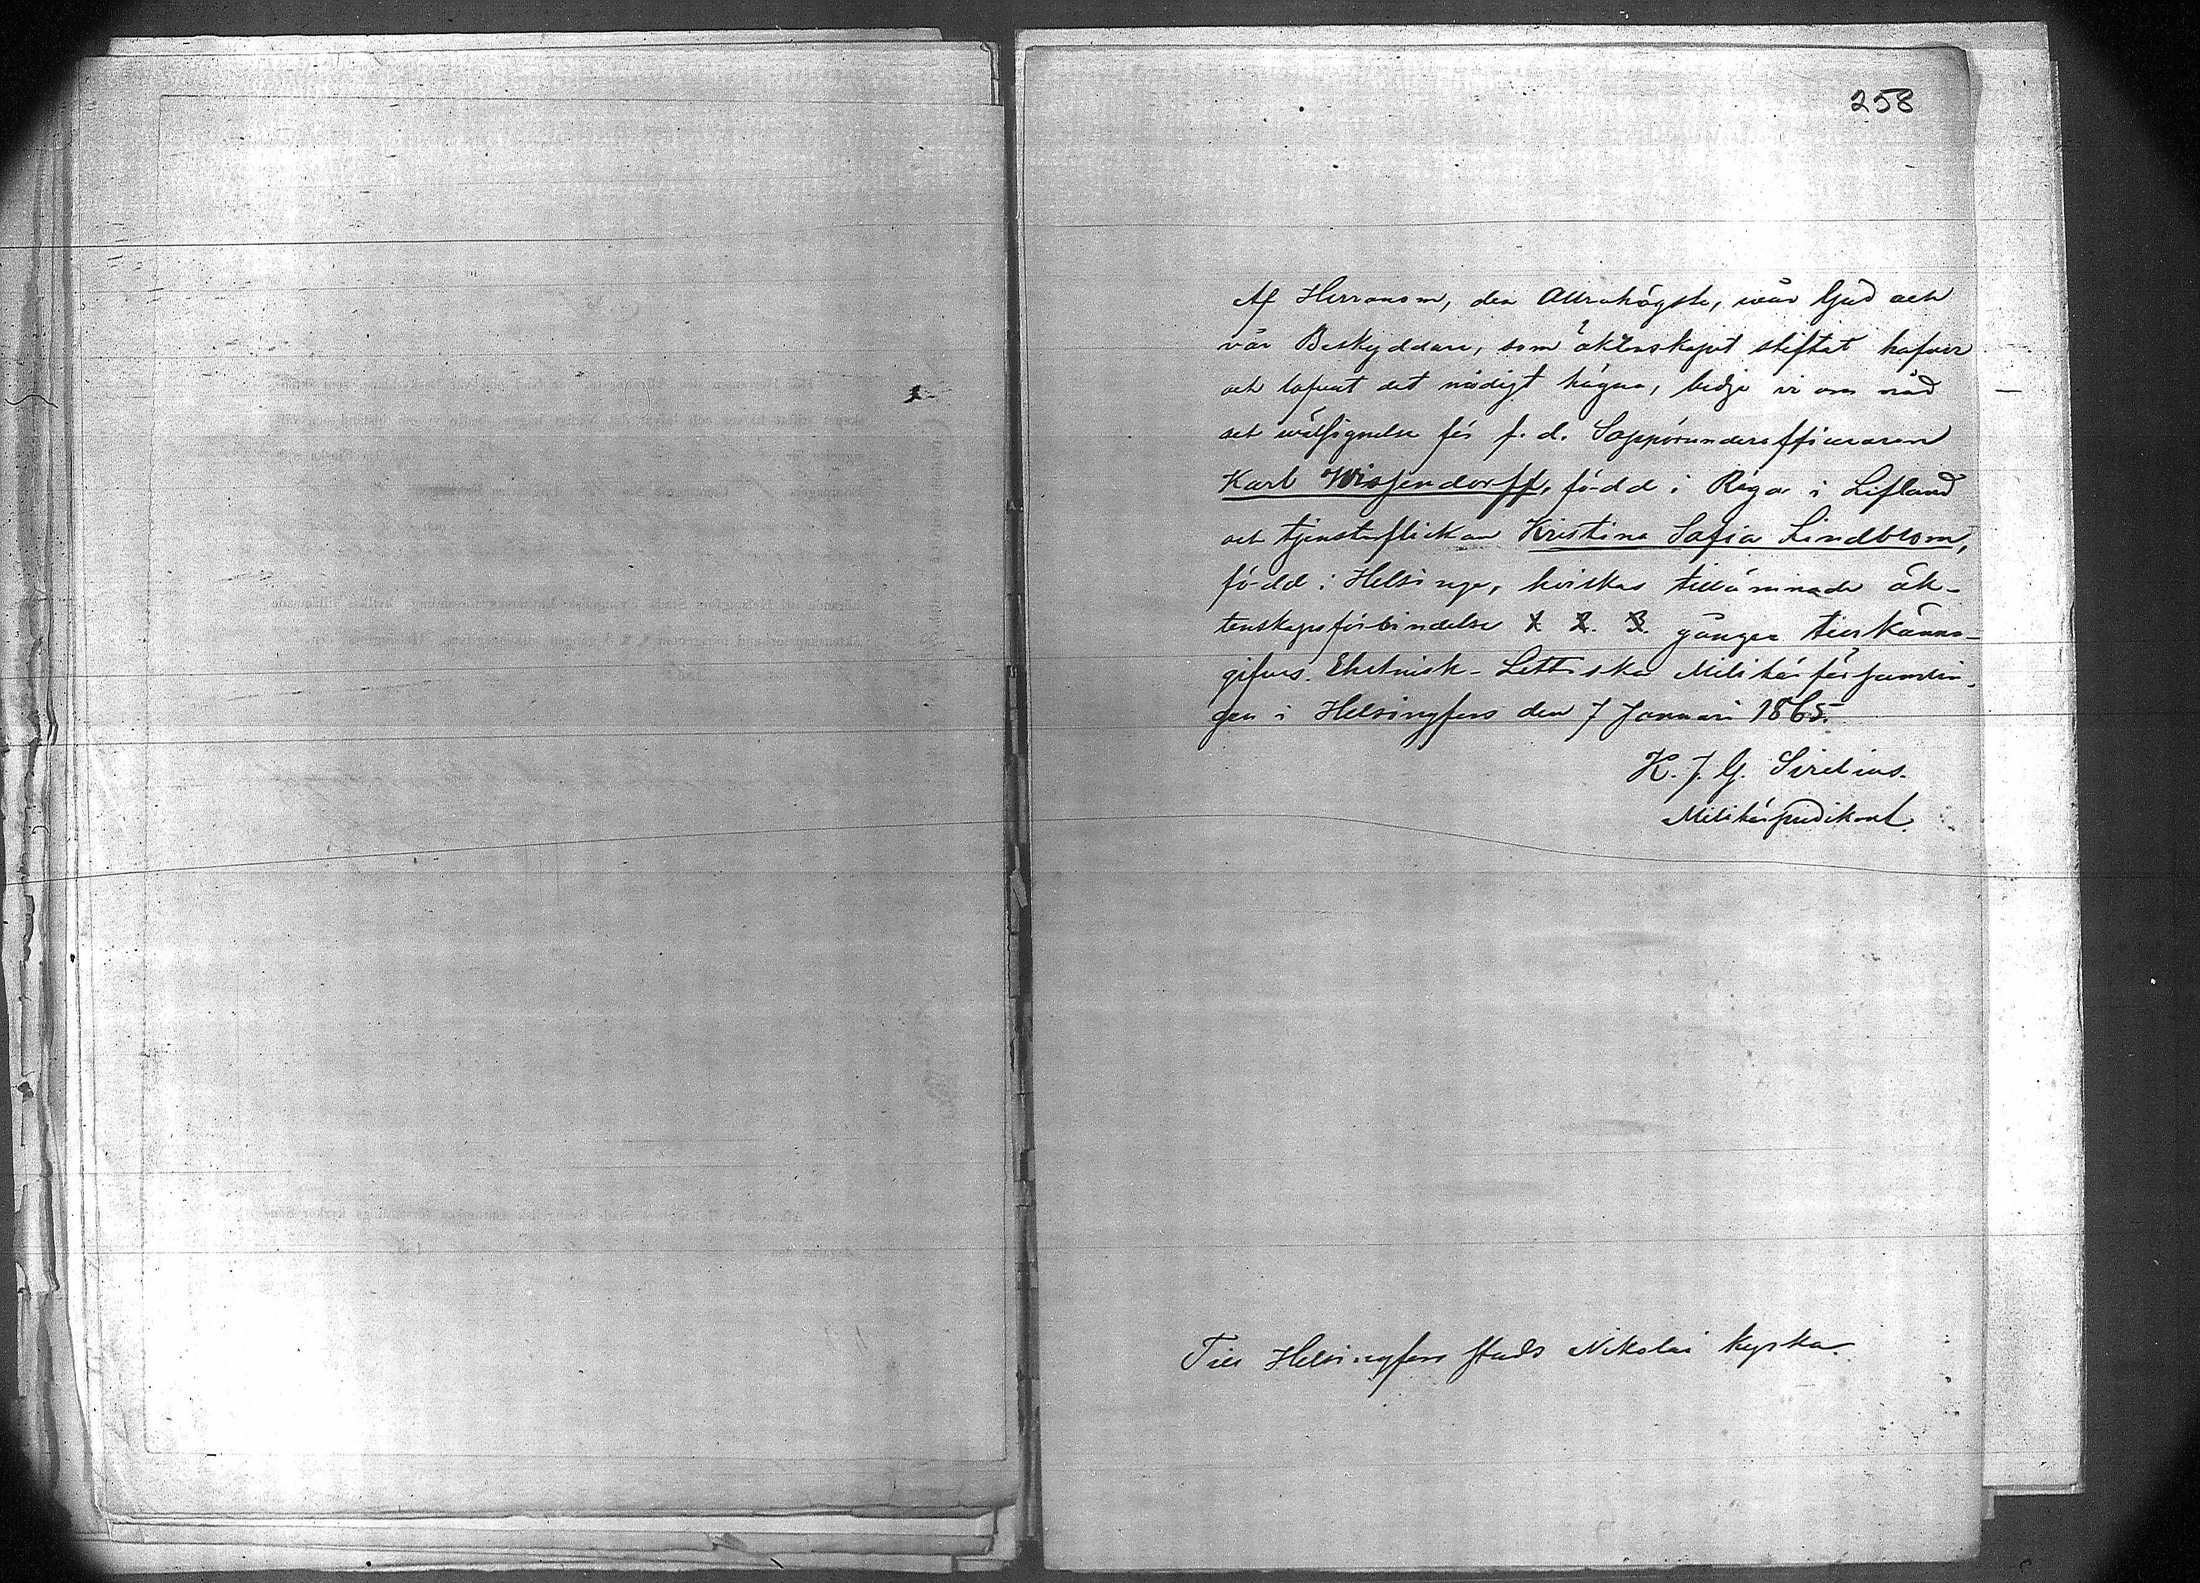 258
Af Herranom, den Allrahögste, wår Gud och
vår Beskyddare, som äktenskapet stiftat hafver
och lofvat det nådigt hägna, bedje vi om nåd
och wälsignelse för f. d. Sappörunderofficeraren
Karl Wissendorff, född i Riga i Lifland
och tjensteflickan Kristina Sofia Lindblom,
född i Helsinge, hvilkas tillämnade äk-
tenskapsförbindelse 1. 2. 3. gången tillkänna-
gifves. Ehstnisk-Lettiska Militärförsamlin-
gen i Helsingfors den 7 Januari 1865.
K. J. G. Sirelius.
Militärpredikant.
Till Helsingfors stads Nikolai kyrka.